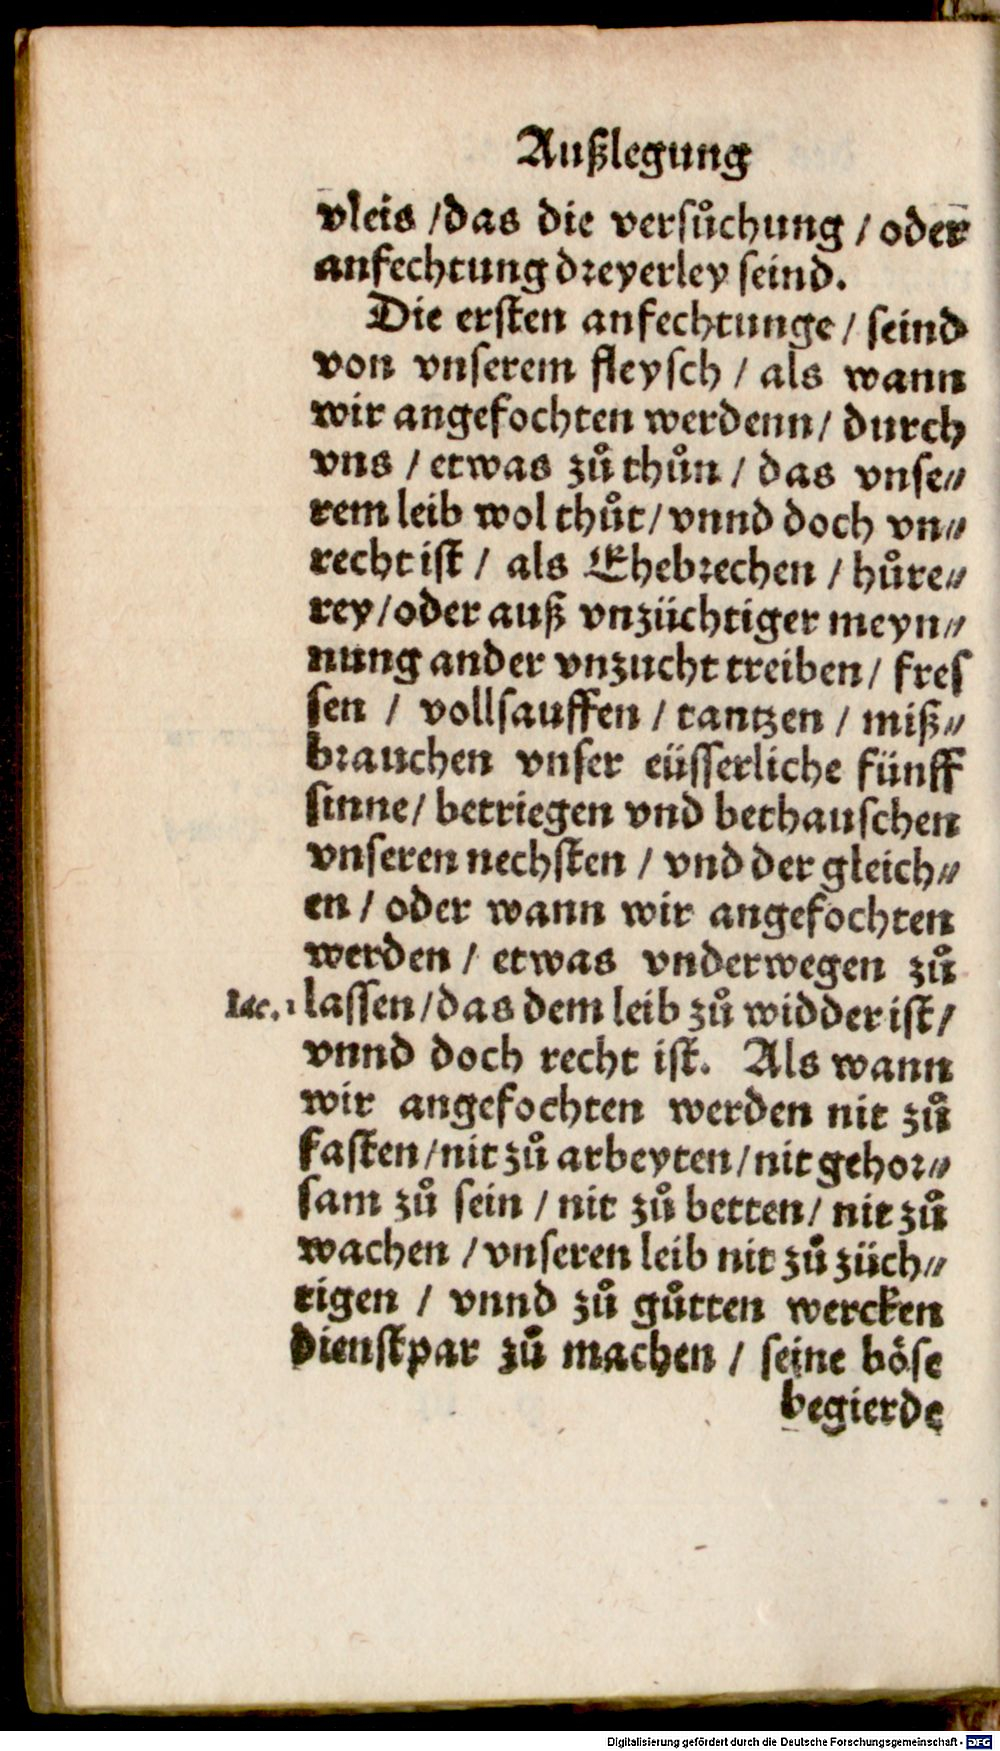 Außlegung
vleis /das die versuͦchung / oder
anfechtung dreyerley seind.
Die ersten anfechtunge / seind
von vnserem fleysch / als wann
wir angefochten werdenn / durch
vns / etwas zuͦ thuͦn / das vnse⸗
rem leib wol thuͦt / vnnd doch vn⸗
recht ist / als Ehebrechen / huͦre⸗
rey / oder auß vnzüchtiger meyn⸗
nung ander vnzucht treiben / fres
sen / vollsauffen / tantzen / miß⸗
brauchen vnser eüsserliche fünff
sinne / betriegen vnd bethauschen
vnseren nechsten / vnd der gleich⸗
en / oder wann wir angefochten
werden / etwas vnderwegen zuͦ
Iac. 1 lassen / das dem leib zuͦ widder ist /
vnnd doch recht ist. Als wann
wir angefochten werden nit zuͦ
fasten / nit zuͦ arbeyten / nit gehor⸗
sam zuͦ sein / nit zuͦ betten / nit zuͦ
wachen / vnseren leib nit zuͦ züch⸗
tigen / vnnd zuͦ guͦtten wercken
dienstpar zuͦ machen / seine böse
begierde
Digitalisierung gefördert durch die Deutsche Forschungsgemeinschaft - DFG